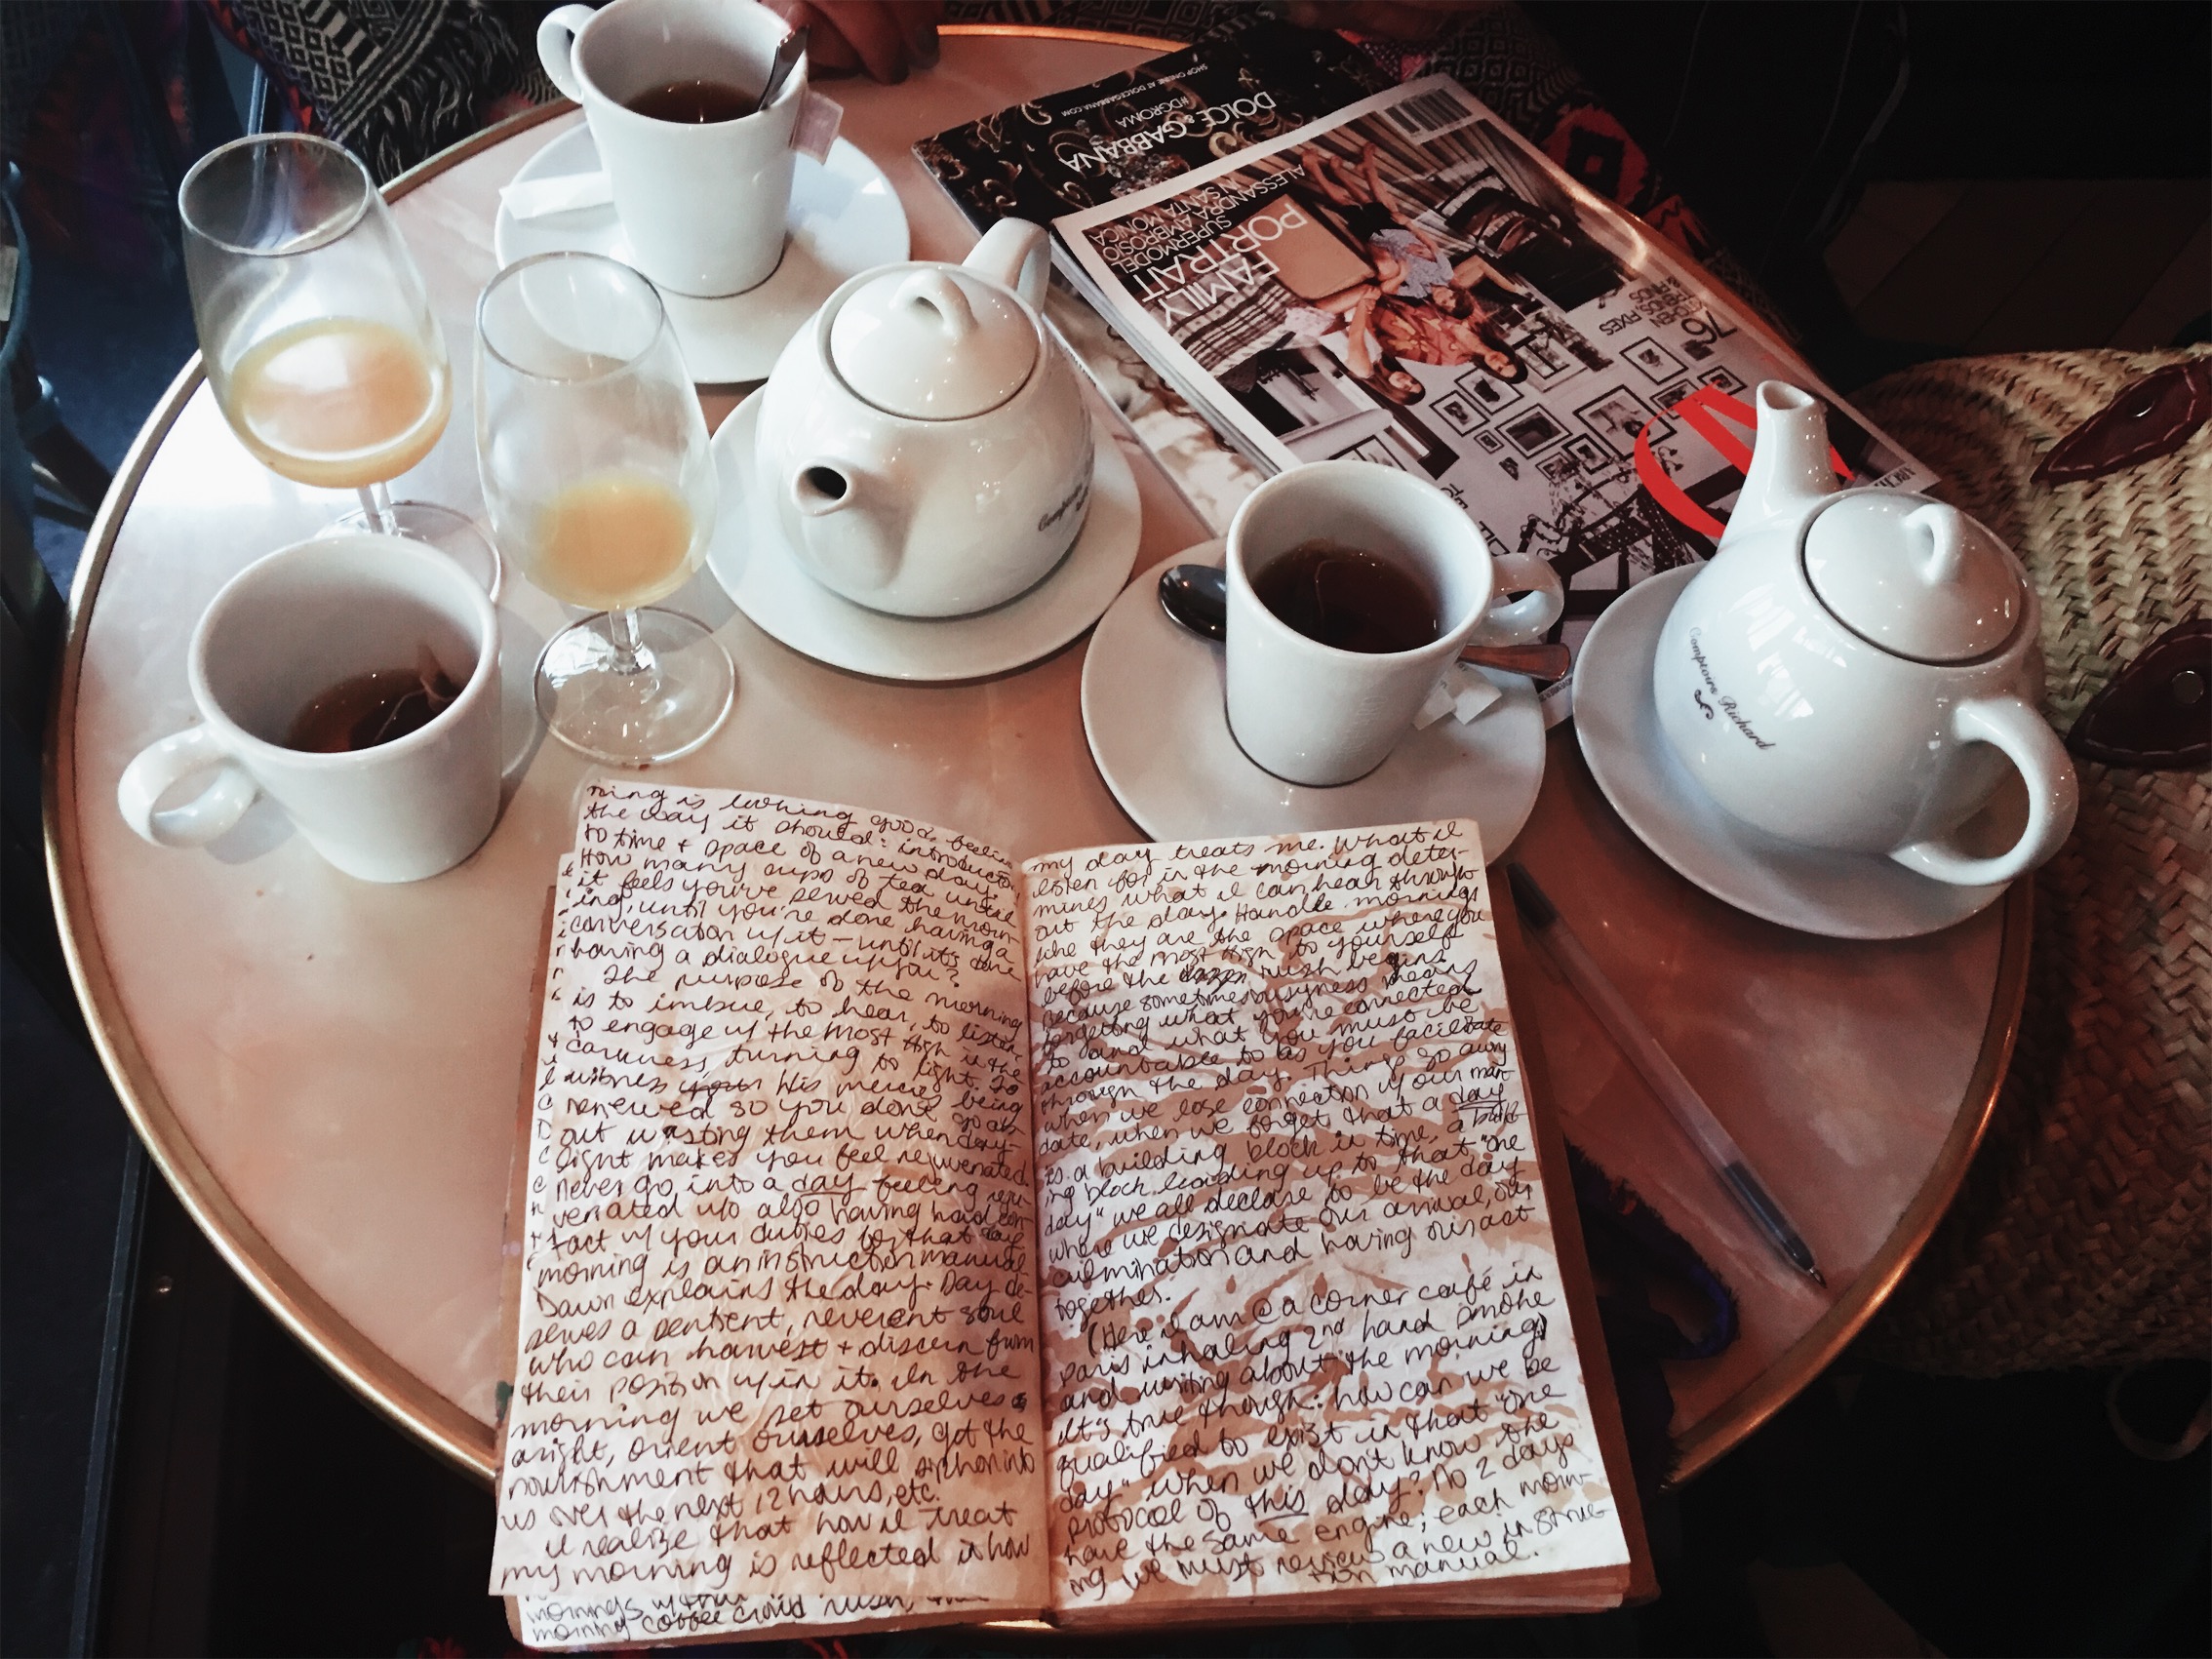 SHOP ONLINE AT DOLCEGABBANA.COM
#DGROMA
DOLCE & GABBANA
FAMILY
PORTRAIT
SUPERMODEL
ALESSANDRA AMBROSIO
IN SANTA MONICA
76
KITCHEN
TRENDS, FIXES
& FINDS
Comptoirs Richard
ning is looking good, feeling
the way it should: introduction
to time + space of a new day.
How many cups of tea until
it feels you've served the morn-
ing, until you're done having a
conversation w/ it — until it's done
having a dialogue w/ you?
The purpose of the morning
is to imbue, to hear, to listen,
to engage w/ the Most High in the
darkness, turning to light. To
witness His mercies being
renewed so you don't go
out wasting them when day-
light makes you feel rejuvenated
never go into a day feeling reju-
venated w/o also having had con-
tact w/ your duties for that day
morning is an instruction manual
Dawn explains the day. Day de-
serves a sentient, reverent soul
who can harvest + discern from
their position w/in it. In the
morning we set ourselves
aright, orient ourselves, get the
nourishment that will siphon into
us over the next 12 hours, etc.
I realize that how I treat
my morning is reflected in how
mornings
morning coffee crowd rush,
my day treats me. What I
listen for in the morning deter-
mines what I can hear through-
out the day. Handle mornings
like they are the space where you
have the Most High to yourself
before the rush begins
because sometimes busyness means
forgetting what you're connected
to and what you must be
accountable to as you facilitate
through the day. Things go awry
when we lose connection w/ our man-
date, when we forget that a day
is a building block in time, a build-
ing block leading up to that "one
day" we all declare to be the day
where we designate our arrival, our
culmination and having our act
together.
(Here I am @ a corner café in
paris inhaling 2nd hand smoke
and writing about the morning)
It's true though: how can we be
qualified to exist in that "one
day" when we don't know the
protocol of this day? No 2 days
have the same engine; each morn-
ing we must a new instruc-
tion manual.